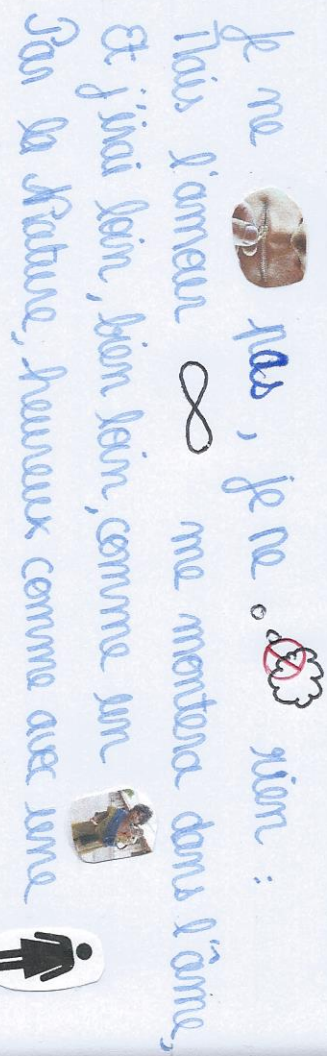 Je ne pas, je ne rien :
Mais l'amour ∞ me montera dans l'âme,
Et j'irai loin, bien loin, comme un
Par la Nature, heureux comme avec une